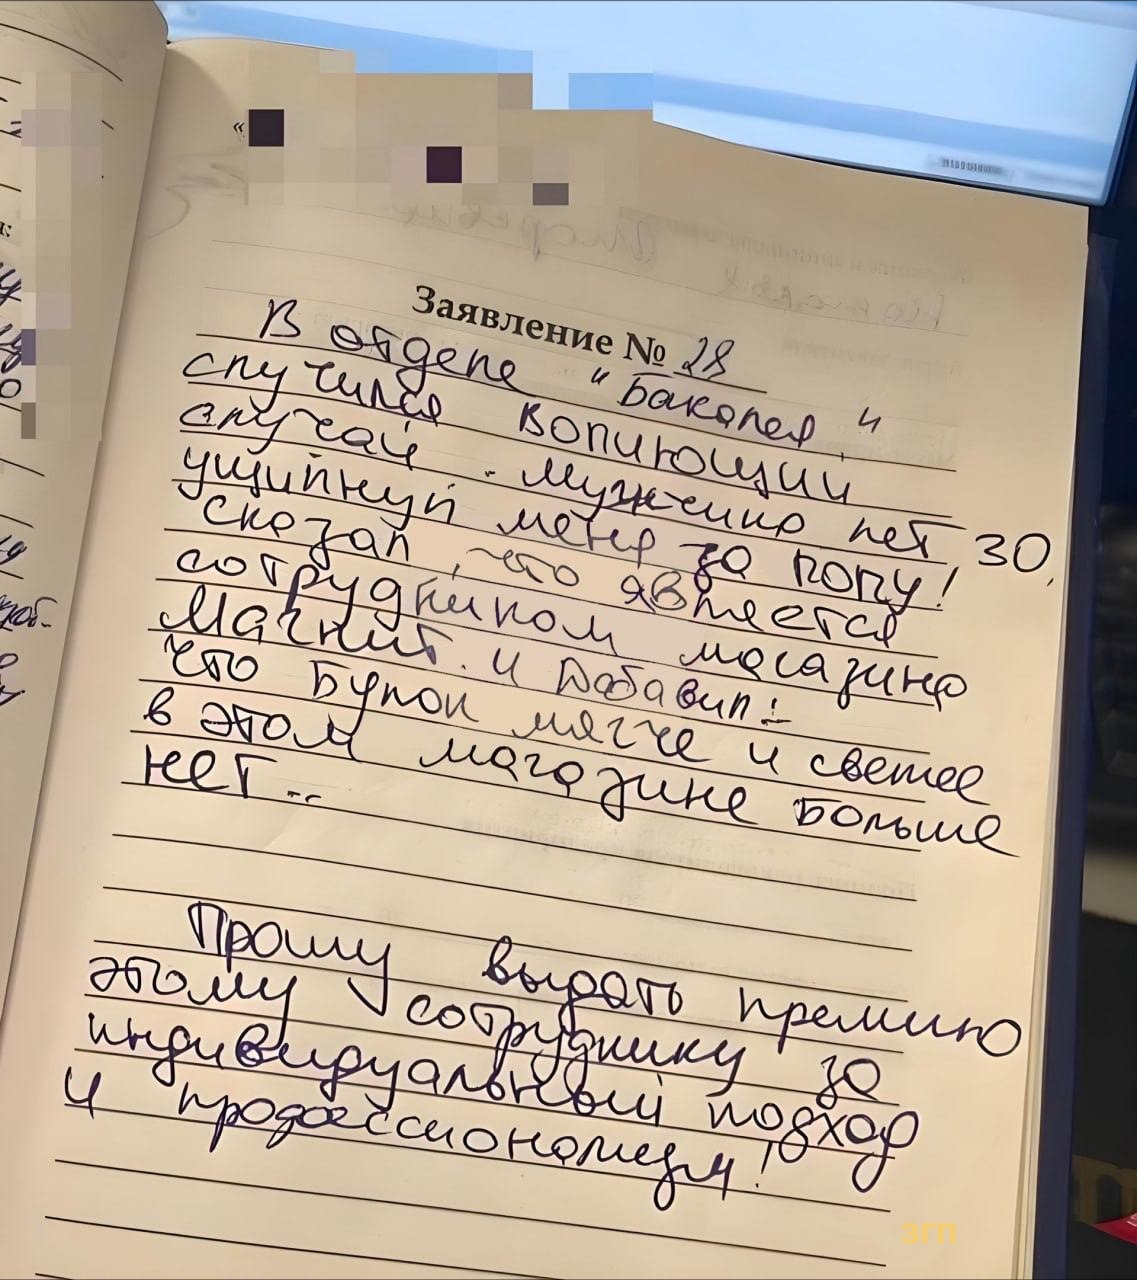 Заявление № 28
В отделе "Бакалея"
случился вопиющий
случай. Мужчина лет 30,
ущипнуй меня за попу!
сказал, что является
сотрудником магазина
Магнит. и Добавил:-
что Булок мягче и свежее
в этом магазине Больше
нет...
Прошу выдать премию
этому сотруднику за
индивидуальный подход
и профессионализм!
згп